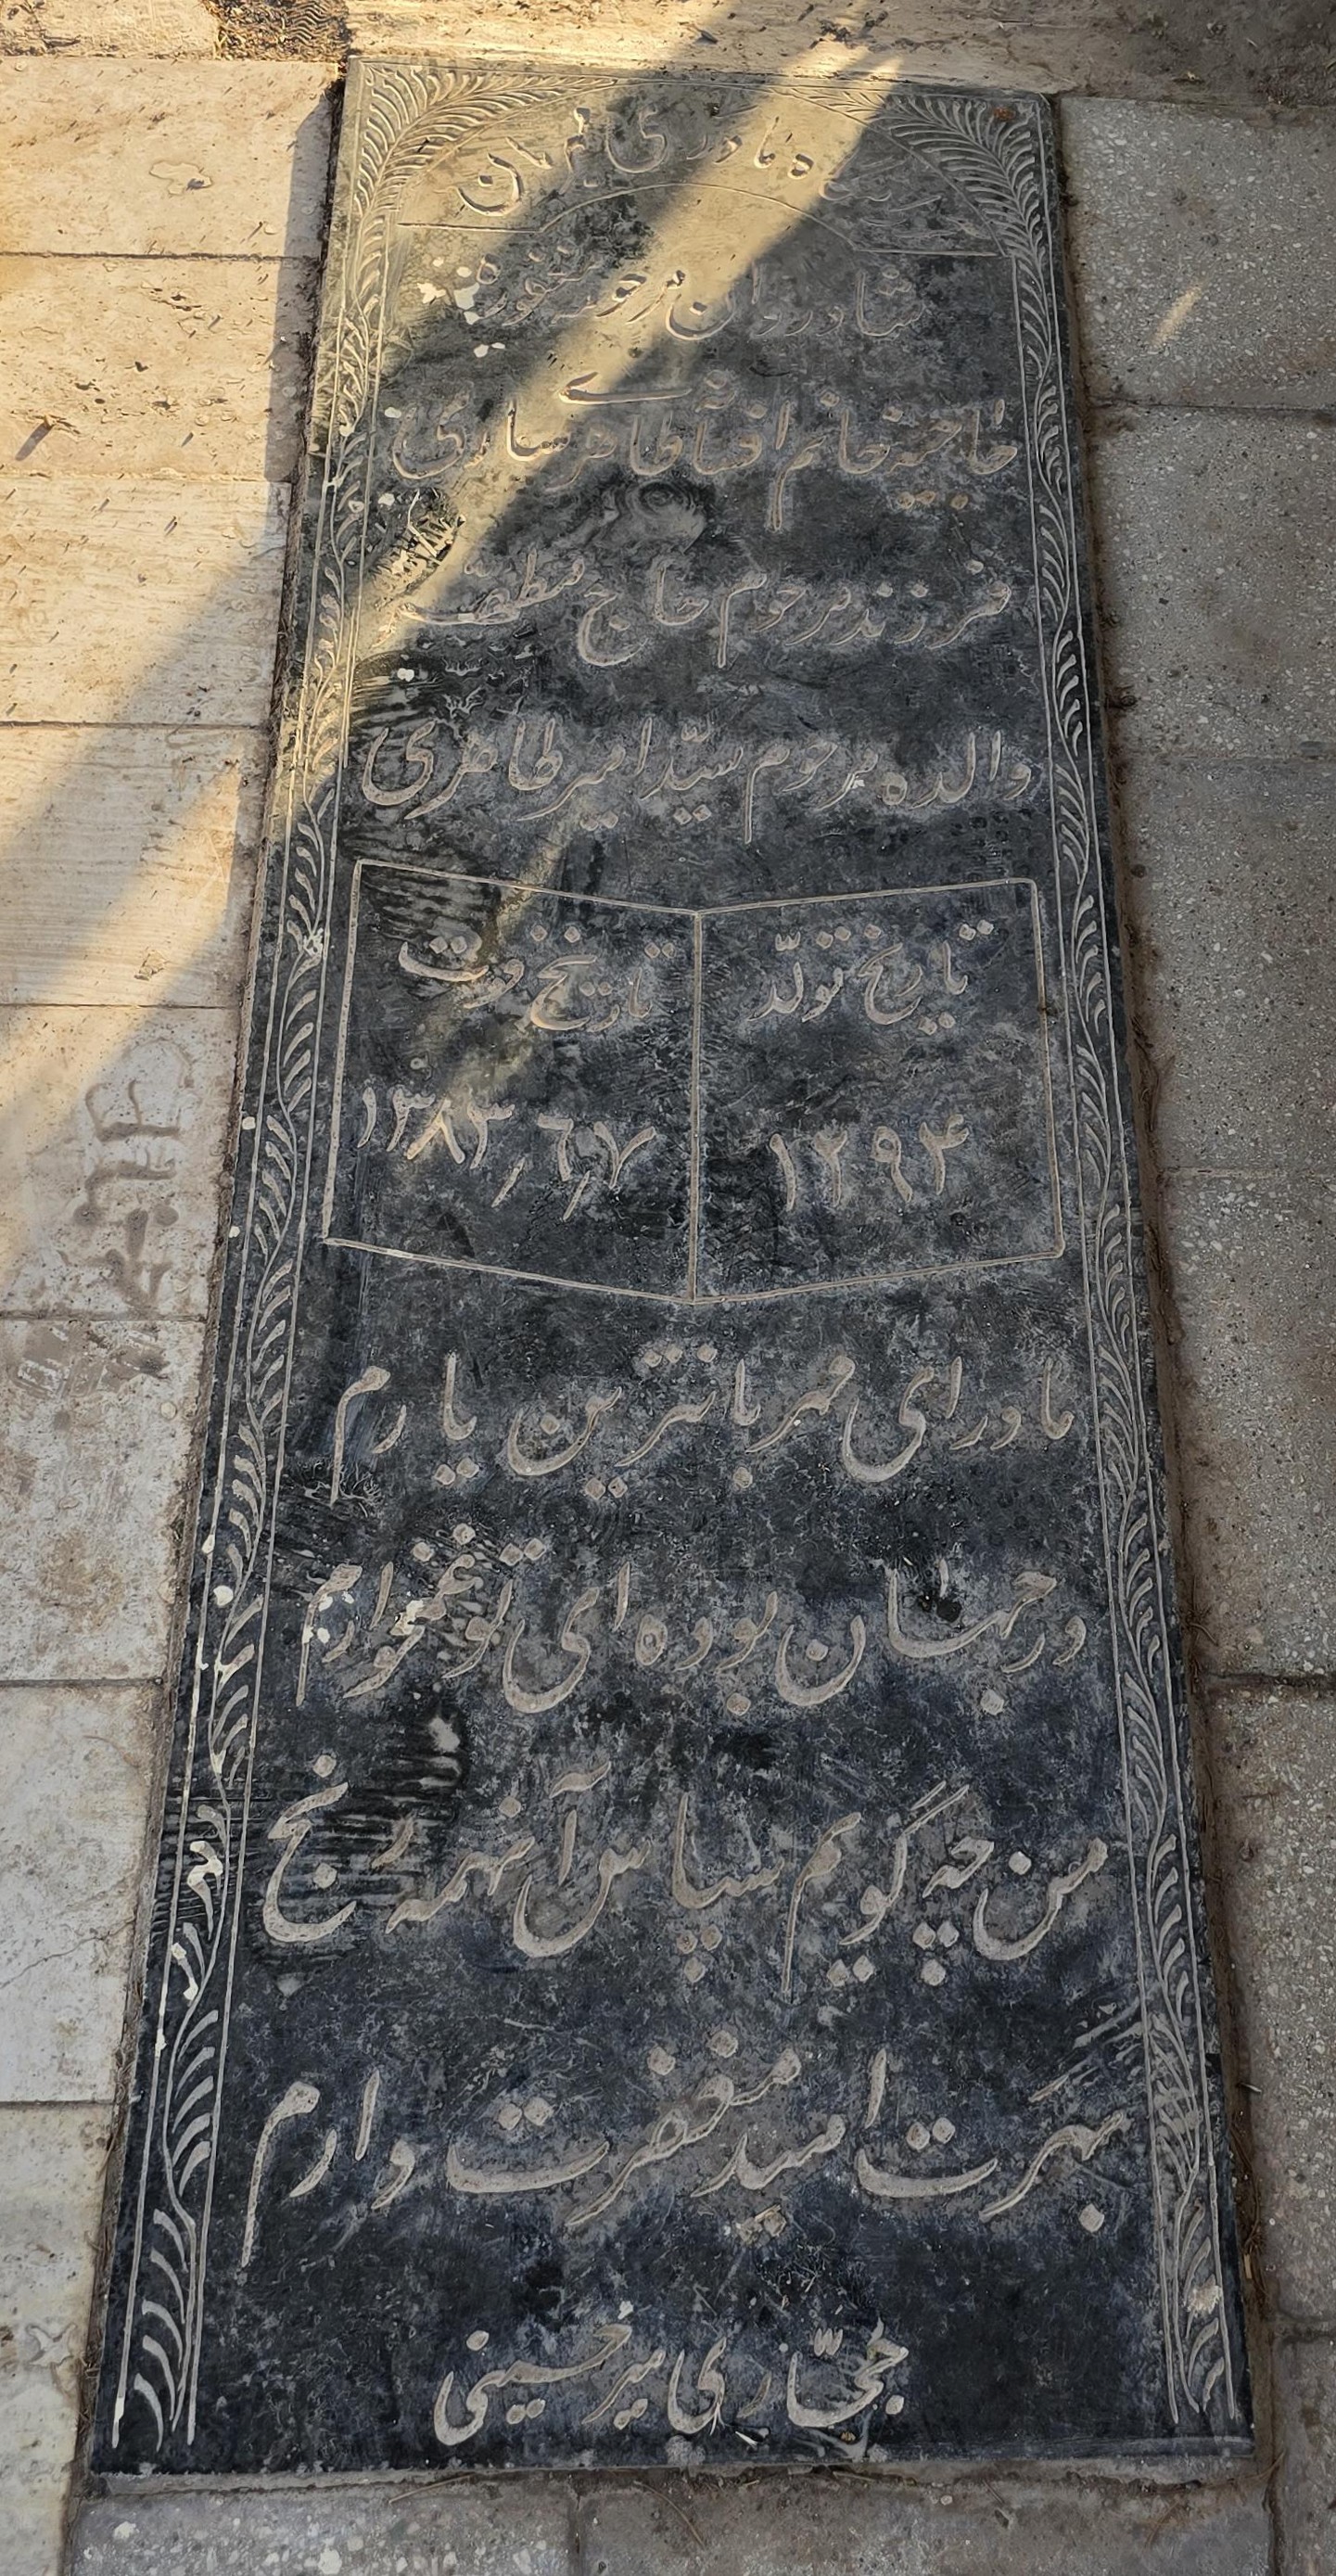 آرامگاه مادری مهربان
شادروان مرحومه مغفوره
حاجیه خانم اقدس طاهر ساروی
فرزند مرحوم حاج مظفر
والده مرحوم سیّد امیر طاهری
تاریخ تولّد
۱۲۹۴
تاریخ فوت
۱۳۸۳٫۶٫۷
مادر ای مهربانترین یارم
در جهان بوده ای تو غمخوارم
من چه گویم سپاس آنهمه رنج
بهرت امید مغفرت دارم
حجّاری میرحسینی